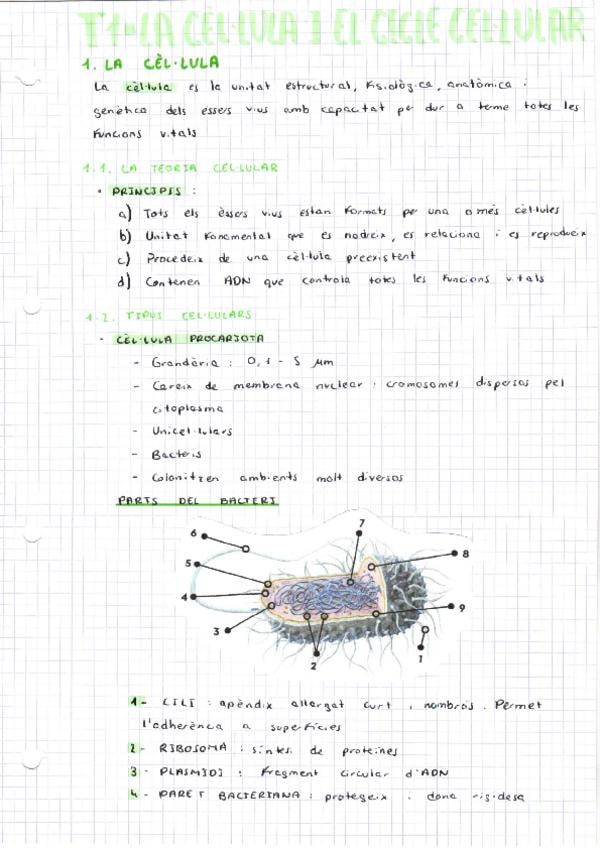 T1-LA CÈL·LULA I EL CICLE CEL·LULAR
1. LA CÈL·LULA
La cèl·lula es la unitat estructural, fisiològica, anatòmica i
genètica dels éssers vius amb capacitat per dur a terme totes les
funcions vitals
1.1. LA TEORIA CEL·LULAR
· PRINCIPIS :
a) Tots els éssers vius estan formats per una o més cèl·lules
b) Unitat fonamental que es nodreix, es relaciona i es reprodueix
c) Procedeix de una cèl·lula preexistent
d) Contenen ADN que controla totes les funcions vitals
1.2. TIPUS CEL·LULARS
· CÈL·LULA PROCARIOTA
- Grandària : 0,1 - 5 μm
- Careix de membrana nuclear : cromosomes dispersos pel
citoplasma
- Unicel·lulars
- Bacteris
- Colonitzen ambients molt diversos
PARTS DEL BACTERI
6
7
5
8
4
9
3
2
1
1- CILI : apèndix allargat curt i nombrós. Permet
l'adherència a superfícies
2- RIBOSOMA : síntesi de proteïnes
3- PLASMIDI : fragment circular d'ADN
4- PARET BACTERIANA : protegeix i dona rigidesa